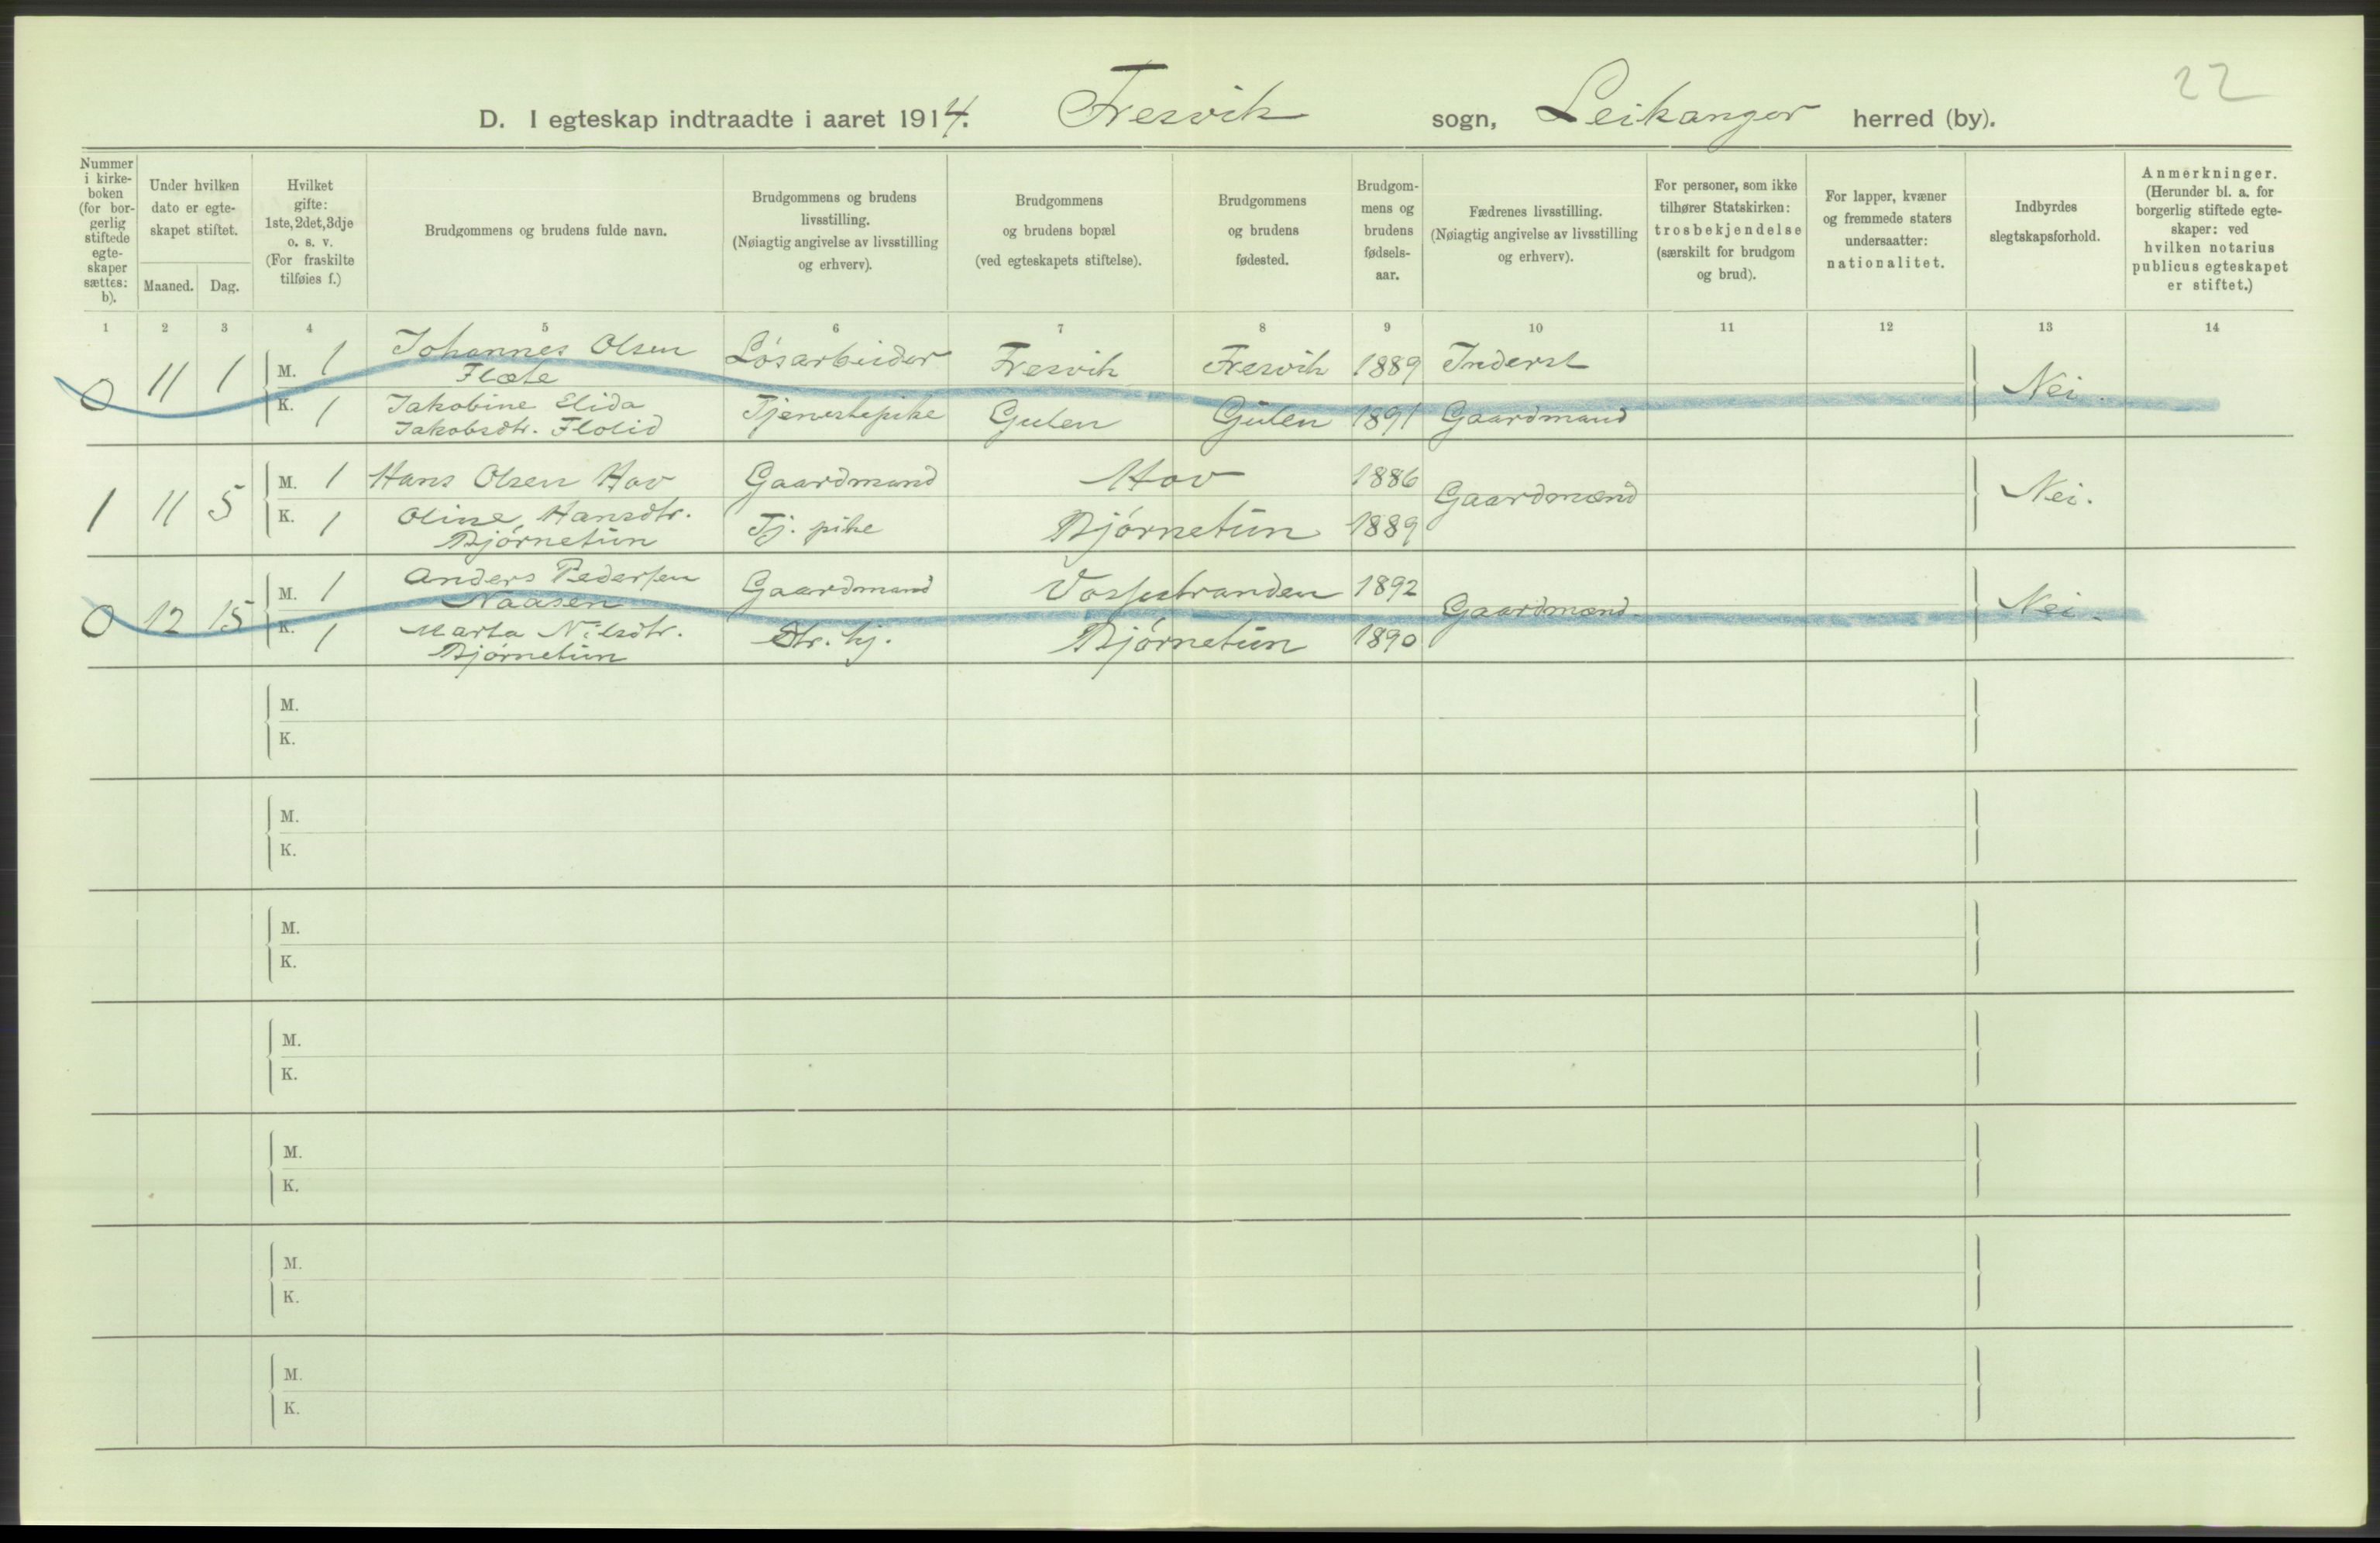 22
D. I egteskap indtraadte i aaret 1914. Fresvik sogn, Leikanger herred (by).
Nummer i kirke-boken (for bor-gerlig stiftede egte-skaper sættes: b).
Under hvilken dato er egte-skapet stiftet.
Maaned. Dag.
Hvilket gifte: 1ste, 2det, 3dje o. s. v. (For fraskilte tilføies f.)
Brudgommens og brudens fulde navn.
Brudgommens og brudens livsstilling. (Nøiagtig angivelse av livsstilling og erhverv).
Brudgommens og brudens bopæl (ved egteskapets stiftelse).
Brudgommens og brudens fødested.
Brudgom-mens og brudens fødsels-aar.
Fædrenes livsstilling. (Nøiagtig angivelse av livsstilling og erhverv).
For personer, som ikke tilhører Statskirken: trosbekjendelse (særskilt for brudgom og brud).
For lapper, kvæner og fremmede staters undersaatter: nationalitet.
Indbyrdes slegtskapsforhold.
Anmerkninger. (Herunder bl. a. for borgerlig stiftede egte-skaper: ved hvilken notarius publicus egteskapet er stiftet.)
1 2 3 4 5 6 7 8 9 10 11 12 13 14
0 11 1 M. 1 Johannes Olsen Løsarbeider Fresvik Fresvik 1889 Inderst Nei.
Flæte
K. 1 Jakobine Elida Tjenestepike Gulen Gulen 1891 Gaardmand
Jakobsdtr. Flolid
1 11 5 M. 1 Hans Olsen Hov Gaardmand Hov 1886 Gaardmænd Nei.
K. 1 Oline Hansdtr. Tj. pike Bjørnetun 1889
Bjørnetun
0 12 15 M. 1 Anders Pedersen Gaardmand Vossestranden 1892 Gaardmænd. Nei.
Naasen
K. 1 Marta Nilsdtr. Str. hj. Bjørnetun 1890
Bjørnetun
M.
K.
M.
K.
M.
K.
M.
K.
M.
K.
M.
K.
M.
K.